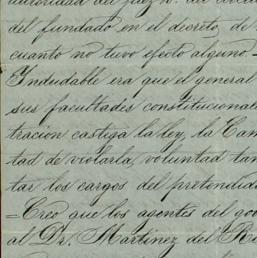 autoridad del juez
del fundado en el decreto de
cuanto no tuvo efecto alguno.-
Indudable era que el general
sus facultades constitucional
tracion castiga la ley, la Cam
tad de violarla, voluntad tan
tar los cargos del pretendid
=Creo que los agentes del go
al Dr. Martinez del Ri